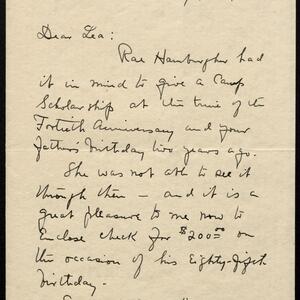 Dear Lea:
Rae Hamburgher had
it in mind to give a Camp
Scholarship at the time of the
Fortieth Anniversary and your
father's birthday two years ago.
She was not able to see it
through then — and it is a
great pleasure to me now to
Enclose check for $200.00 on
the occasion of his Eighty-fifth
birthday.